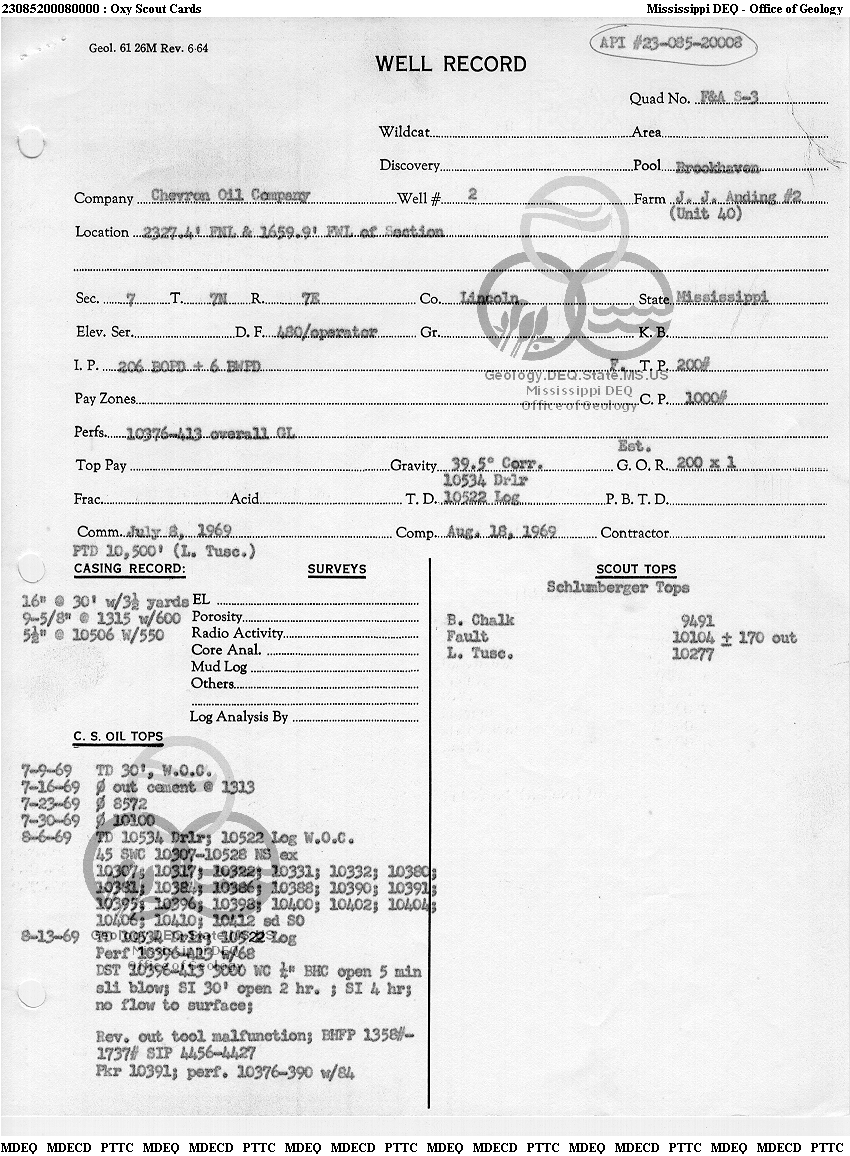 23085200080000 : Oxy Scout Cards Mississippi DEQ - Office of Geology
Geol. 61 26M Rev. 6-64 API #23-085-20008
WELL RECORD
Quad No. F&A S-3
Wildcat Area
Discovery Pool Brookhaven
Company Chevron Oil Company Well # 2 Farm J. J. Anding #2
(Unit 40)
Location 2327.4' FNL & 1659.9' FWL of Section
Sec. 7 T. 7N R. 7E Co. Lincoln State Mississippi
Elev. Ser. D. F. 480/operator Gr. K. B.
I. P. 206 BOPD + 6 BWPD F. T. P. 200#
Geology.DEQ.State.MS.US
Mississippi DEQ
Office of Geology
Pay Zones C. P. 1000#
Perfs. 10376-413 overall GL
Est.
Top Pay Gravity 39.5° Corr. G. O. R. 200 x 1
10534 Drlr
Frac. Acid T. D. 10522 Log P. B. T. D.
Comm. July 8, 1969 Comp. Aug. 18, 1969 Contractor
PTD 10,500' (L. Tusc.)
CASING RECORD: SURVEYS
16" @ 30' w/3½ yards EL
9-5/8" @ 1315 w/600 Porosity
5½" @ 10506 W/550 Radio Activity
Core Anal.
Mud Log
Others
Log Analysis By
SCOUT TOPS
Schlumberger Tops
B. Chalk 9491
Fault 10104 ± 170 out
L. Tusc. 10277
C. S. OIL TOPS
7-9-69 TD 30', W.O.C.
7-16-69 Ø out cement @ 1313
7-23-69 Ø 8572
7-30-69 Ø 10100
8-6-69 TD 10534 Drlr; 10522 Log W.O.C.
45 SWC 10307-10528 NS ex
10307; 10317; 10322; 10331; 10332; 10380;
10381; 10384; 10386; 10388; 10390; 10391;
10395; 10396; 10398; 10400; 10402; 10404;
10406; 10410; 10412 sd SO
8-13-69 TD 10534 Drlr; 10522 Log
Geology.DEQ.State.MS.US
Perf 10396-413 w/68
Mississippi DEQ
Office of Geology
DST 10396-413 3000 WC ¼" BHC open 5 min
sli blow; SI 30' open 2 hr. ; SI 4 hr;
no flow to surface;
Rev. out tool malfunction; BHFP 1358#-
1737# SIP 4456-4427
Pkr 10391; perf. 10376-390 w/84
MDEQ MDECD PTTC MDEQ MDECD PTTC MDEQ MDECD PTTC MDEQ MDECD PTTC MDEQ MDECD PTTC MDEQ MDECD PTTC